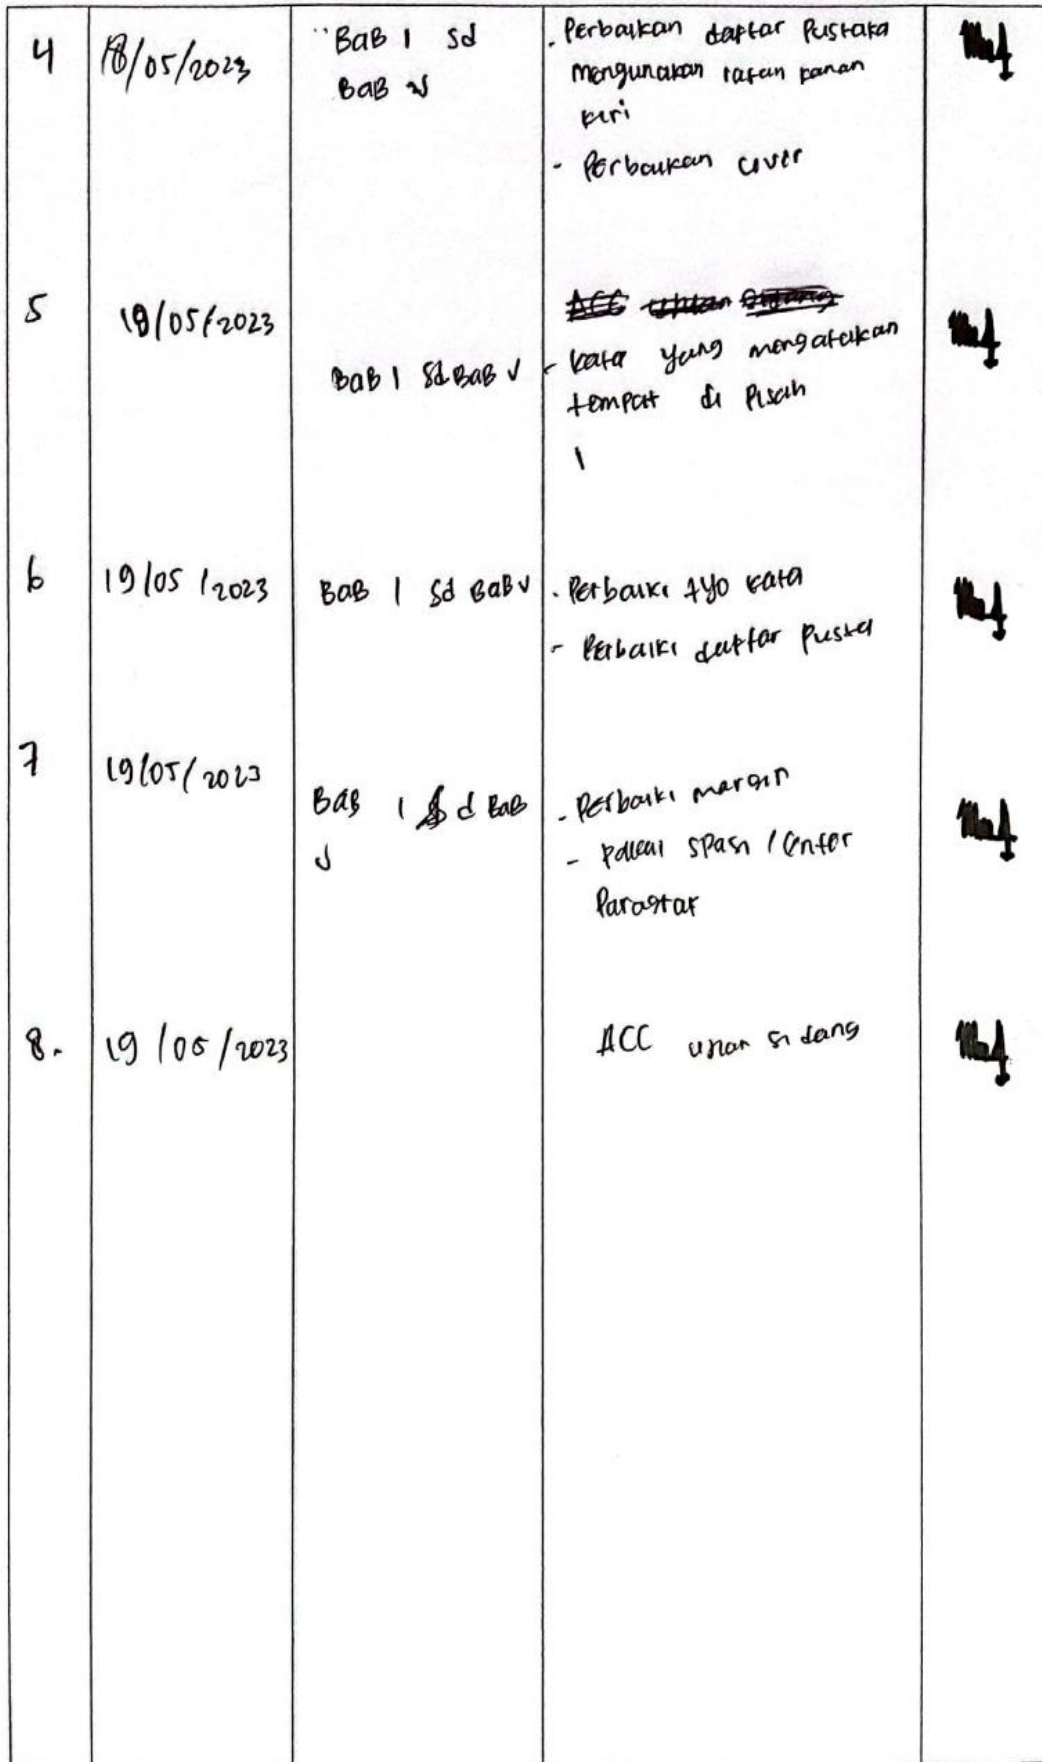 4 18/05/2023 BaB I sd - Perbaikan daftar Pustaka
BaB V mengunakan rataan kanan
kiri
- Perbaikan cover
5 19/05/2023 ACC Ujian Sidang
BaB I Sd BaB V - kata yang mengatakan
tempat di Pisah
6 19/05/2023 BaB I Sd BaB V - Perbaiki tyo kata
- Perbaiki daftar Pustka
7 19/05/2023 BaB I Sd BaB - Perbaiki margin
V - Pakai spasi / Enter
Paragraf
8. 19/05/2023 ACC Ujian Sidang